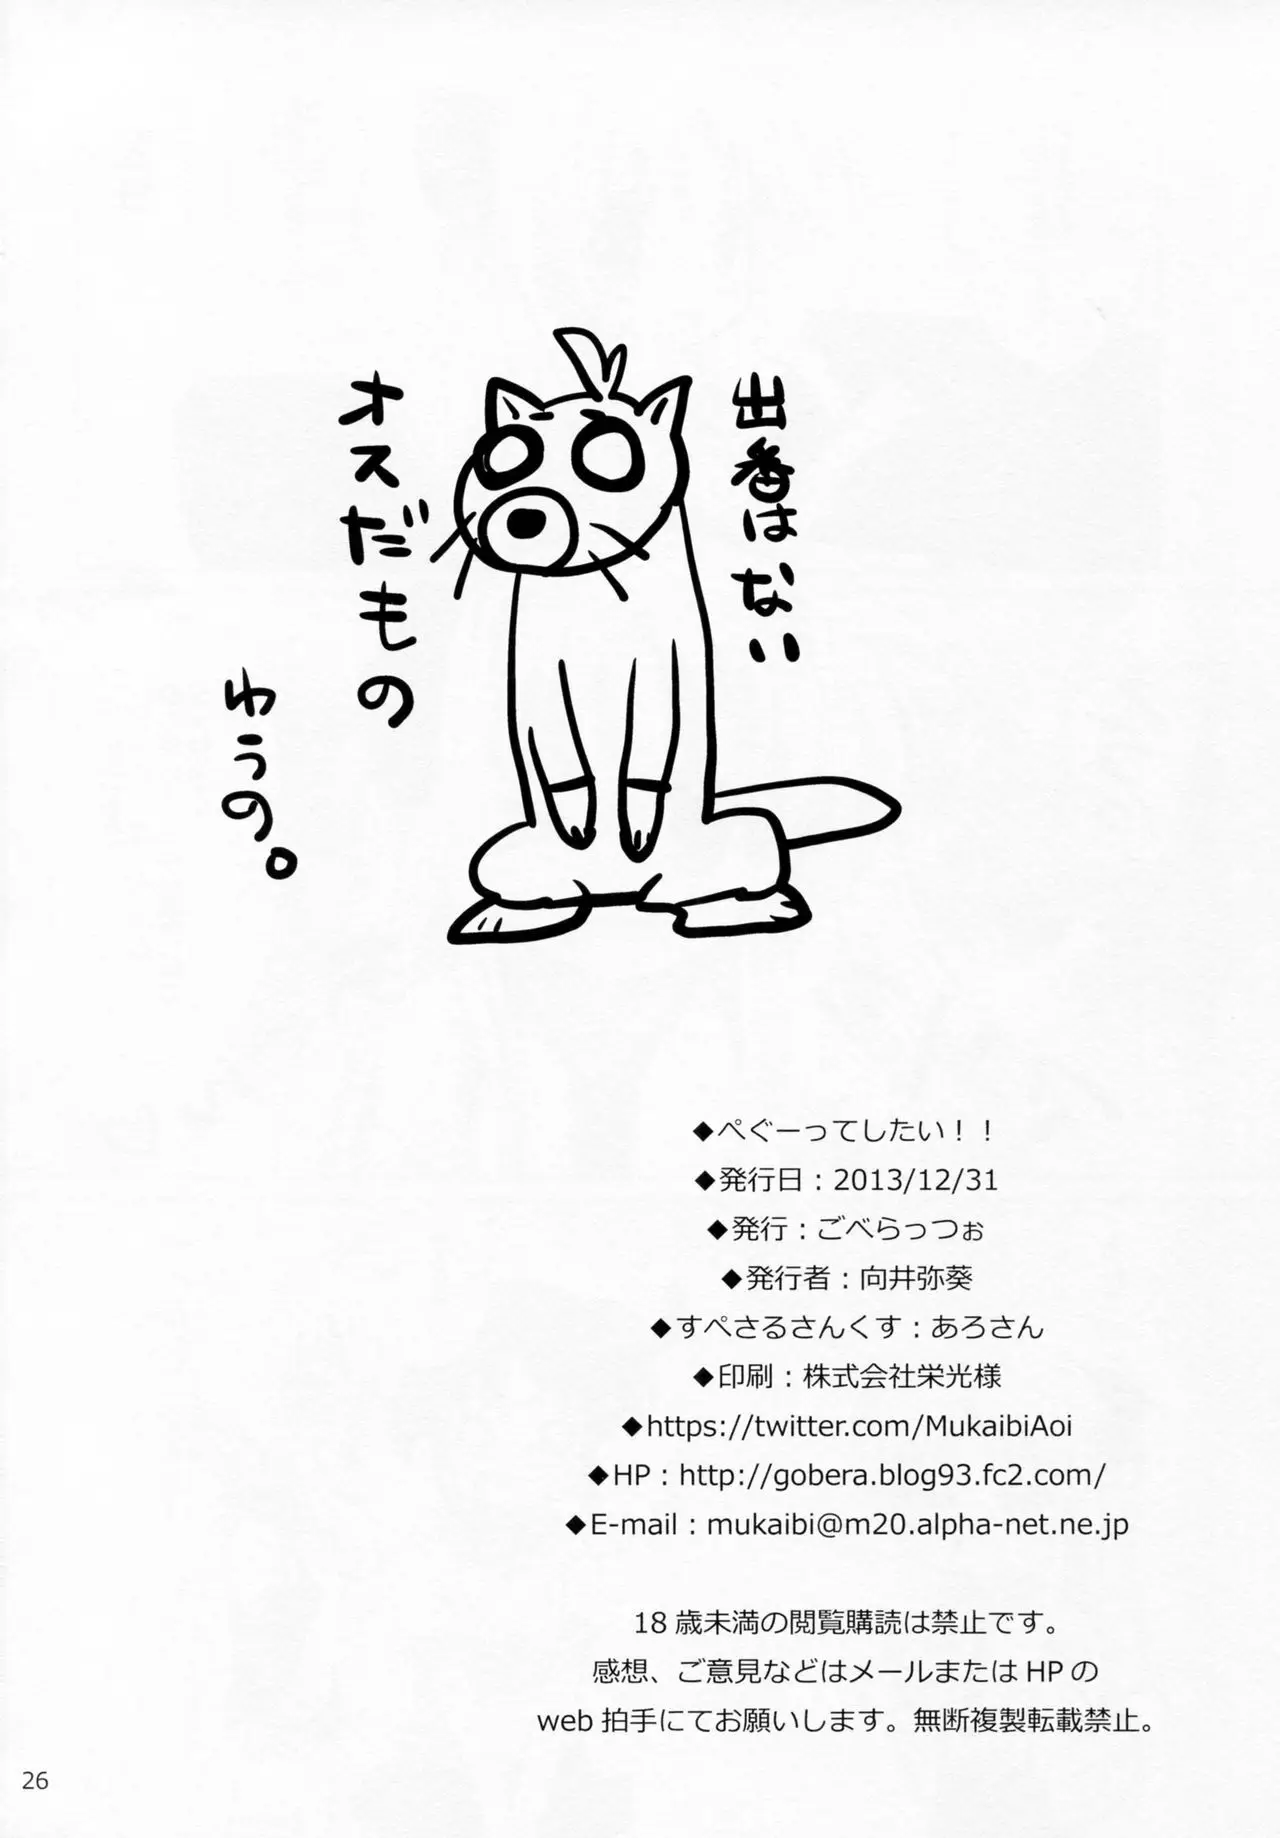 出番はない
オスだもの
ゆうの。
◆ぺぐーってしたい！！
◆発行日：2013/12/31
◆発行：ごべらっつぉ
◆発行者：向井弥葵
◆すぺさるさんくす：あろさん
◆印刷：株式会社栄光様
◆https://twitter.com/MukaibiAoi
◆HP：http://gobera.blog93.fc2.com/
◆E-mail：mukaibi@m20.alpha-net.ne.jp
18歳未満の閲覧購読は禁止です。
感想、ご意見などはメールまたはHPの
web拍手にてお願いします。無断複製転載禁止。
26